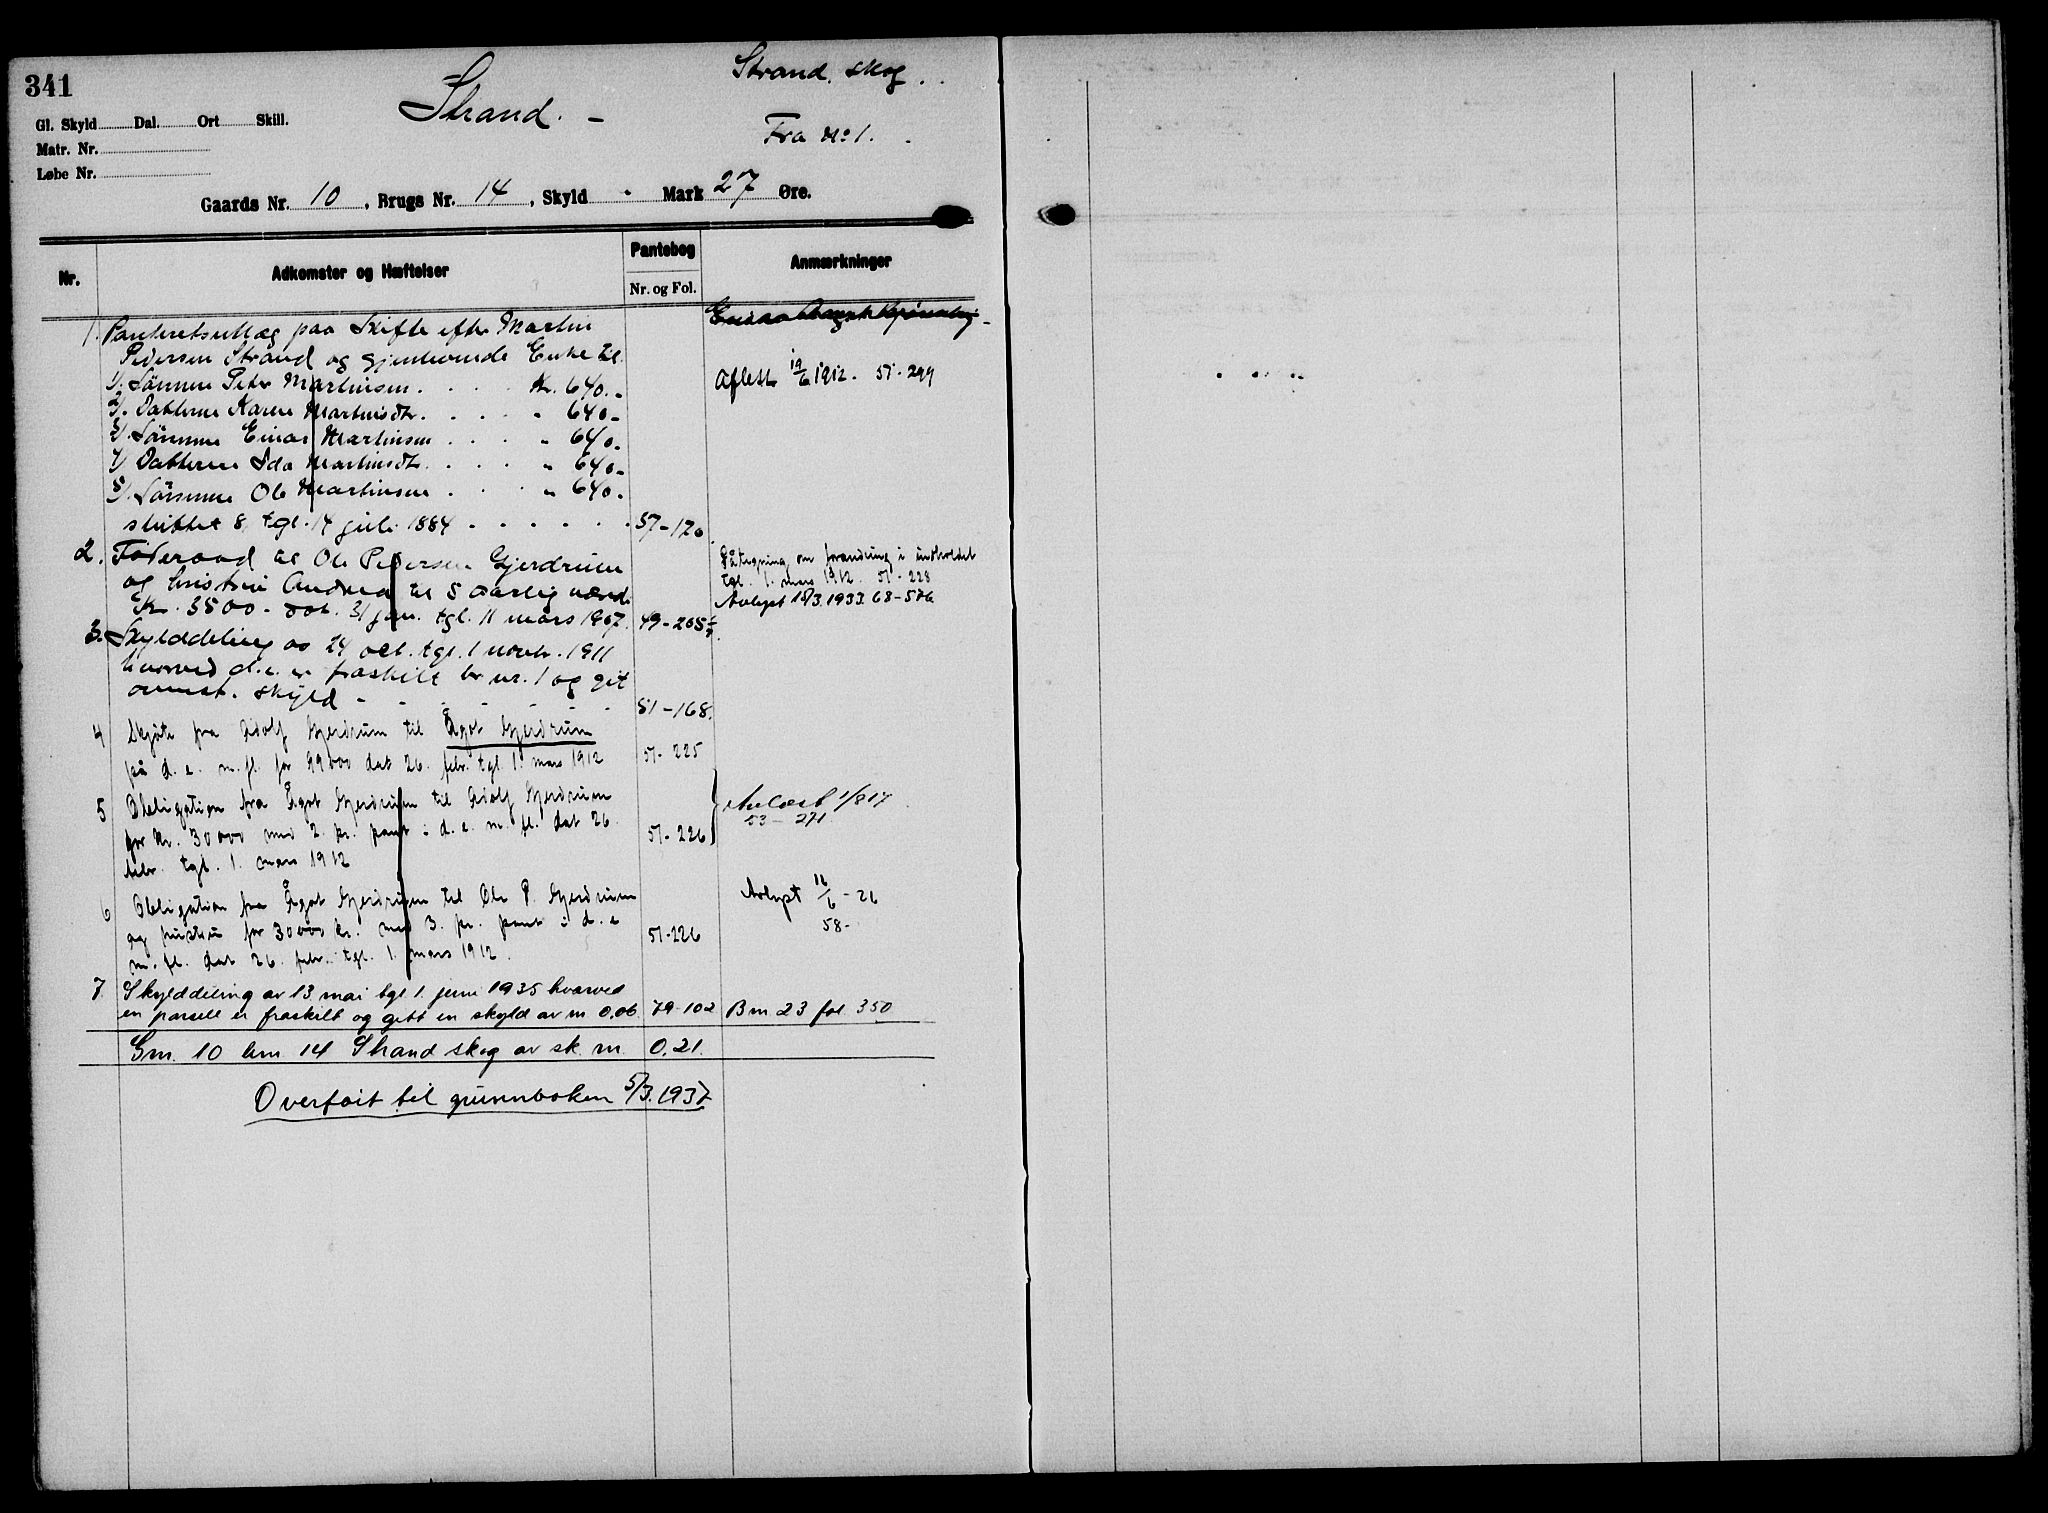 341
Strand. -
Strand. skog.
Gl. Skyld Dal. Ort Skill.
Matr. Nr.
Løbe Nr.
Fra No 1.
Gaards Nr. 10, Brugs Nr. 14, Skyld - Mark 27 Øre.
Nr. Adkomster og Hæftelser Pantebog Nr. og Fol. Anmærkninger
1. Panteretsutlæg paa Skifte efter Martin
Pedersen Strand og gjenlevende Enke til
1/. Sønnen Peter Martinsen. . . . Kr. 640.- Aflest 19/6 1912. 51-299
2/. Datteren Karen Martinsdtr. . . . " 640-
3/. Sønnen Einar Martinsen . . . " 640-
4/ Datteren Ida Martinsdtr. . . . " 640-
5/. Sønnen Ole Martinsen . . . " 640.
sluttet 8, tgl. 14 juli 1884 . . . . . . 37-170
2. Føderaad til Ole Pedersen Gjerdrum Påtegning om forandring i indholdet
og hustru Andrea til 5 aarlig værdi tgl. 1. mars 1912. 51-228
Kr. 3500- dat. 31 jan. tgl. 11 mars 1907. 49-205 Avlyst 18/3.1933. 68-576
3. Skylddeling av 24 okt. tgl. 1 novbr. 1911
hvorved d.e. er fraskilt br nr. 1 og git
ovenst. skyld - - - - - - 51-168.
4 Skjøte fra Adolf Gjerdrum til Ågot Gjerdrum
på d. e. m. fl. for 99000 dat 26. febr. tgl. 1. mars 1912 51-225
5 Obligation fra Ågot Gjerdrum til Adolf Gjerdrum
for kr. 30000 med 2. pr. pant i d. e. m. fl. dat 26. 51-226 Avlæst 1/8 17
febr. tgl. 1. mars 1912 53-271
6 Obligation fra Ågot Gjerdrum til Ole P. Gjerdrum Avlyst 16/6-26
og hustru for 30000 kr. med 3. pr. pant i d. e 51-226 58-
m. fl. dat 26. febr. tgl. 1. mars 1912.
7. Skylddeling av 13. mai tgl 1. juni 1935 hvorved
en parsell er fraskilt og gitt en skyld av m 0,06. 79-102 Bm. 23 fol. 350
Gm. 10 bm 14 Strand skog av sk. m. 0.21.
Overført til grunnboken 5/3.1937